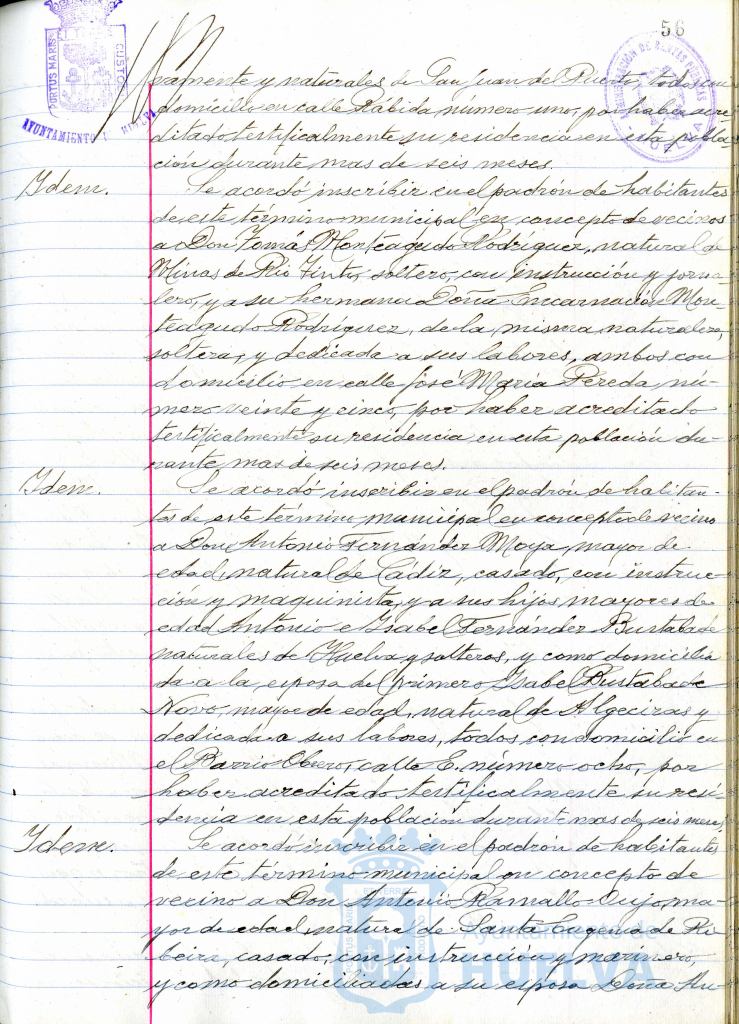 56
PORTUS MARIS CUSTODIA
AYUNTAMIENTO HUELVA
ADMINISTRACION DE RENTAS PUBLICAS
HUELVA
vamente y naturales de San Juan del Puerto, todos con
domicilio en calle Rábida, número uno, por haber acre-
ditado testificalmente su residencia en esta pobla-
ción durante mas de seis meses.
Idem. Se acordó inscribir en el padrón de habitantes
de este término municipal en concepto de vecinos
a Don Tomás Monteagudo Rodríguez, natural de
Minas de Rio Tinto, soltero, con instrucción y jorna-
lero, y a su hermana Doña Encarnación Mon-
teagudo Rodríguez, de la misma naturaleza,
soltera, y dedicada a sus labores, ambos con
domicilio en calle José María Pereda, nú-
mero veinte y cinco, por haber acreditado
testificalmente su residencia en esta población du-
rante mas de seis meses.
Idem. Se acordó inscribir en el padrón de habitan-
tes de este término municipal en concepto de vecino
a Don Antonio Fernández Moya, mayor de
edad, natural de Cádiz, casado, con instruc-
ción y maquinista, y a sus hijos mayores de
edad Antonio e Isabel Fernández Bustabade
naturales de Huelva y solteros, y como domicilia
da a la esposa del primero Isabel Bustabade
Novo, mayor de edad, natural de Algeciras y
dedicada a sus labores, todos con domicilio en
el Barrio Obrero, calle E. número ocho, por
haber acreditado testificalmente su resi-
dencia en esta población durante mas de seis meses.
Idem. Se acordó inscribir en el padrón de habitantes
de este término municipal en concepto de
vecino a Don Antonio Ramallo ma-
yor de edad, natural de Santa Eugenia de Ri
beira, casado, con instrucción y marinero,
y como domiciliadas a su esposa Doña
Ayuntamiento de
HUELVA